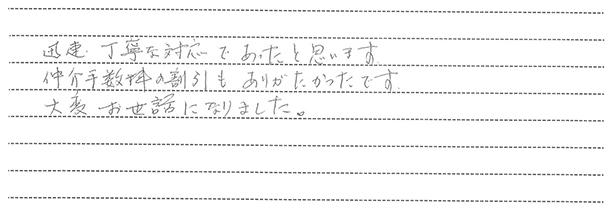 迅速、丁寧な対応であったと思います。
仲介手数料の割引もありがたかったです。
大変お世話になりました。